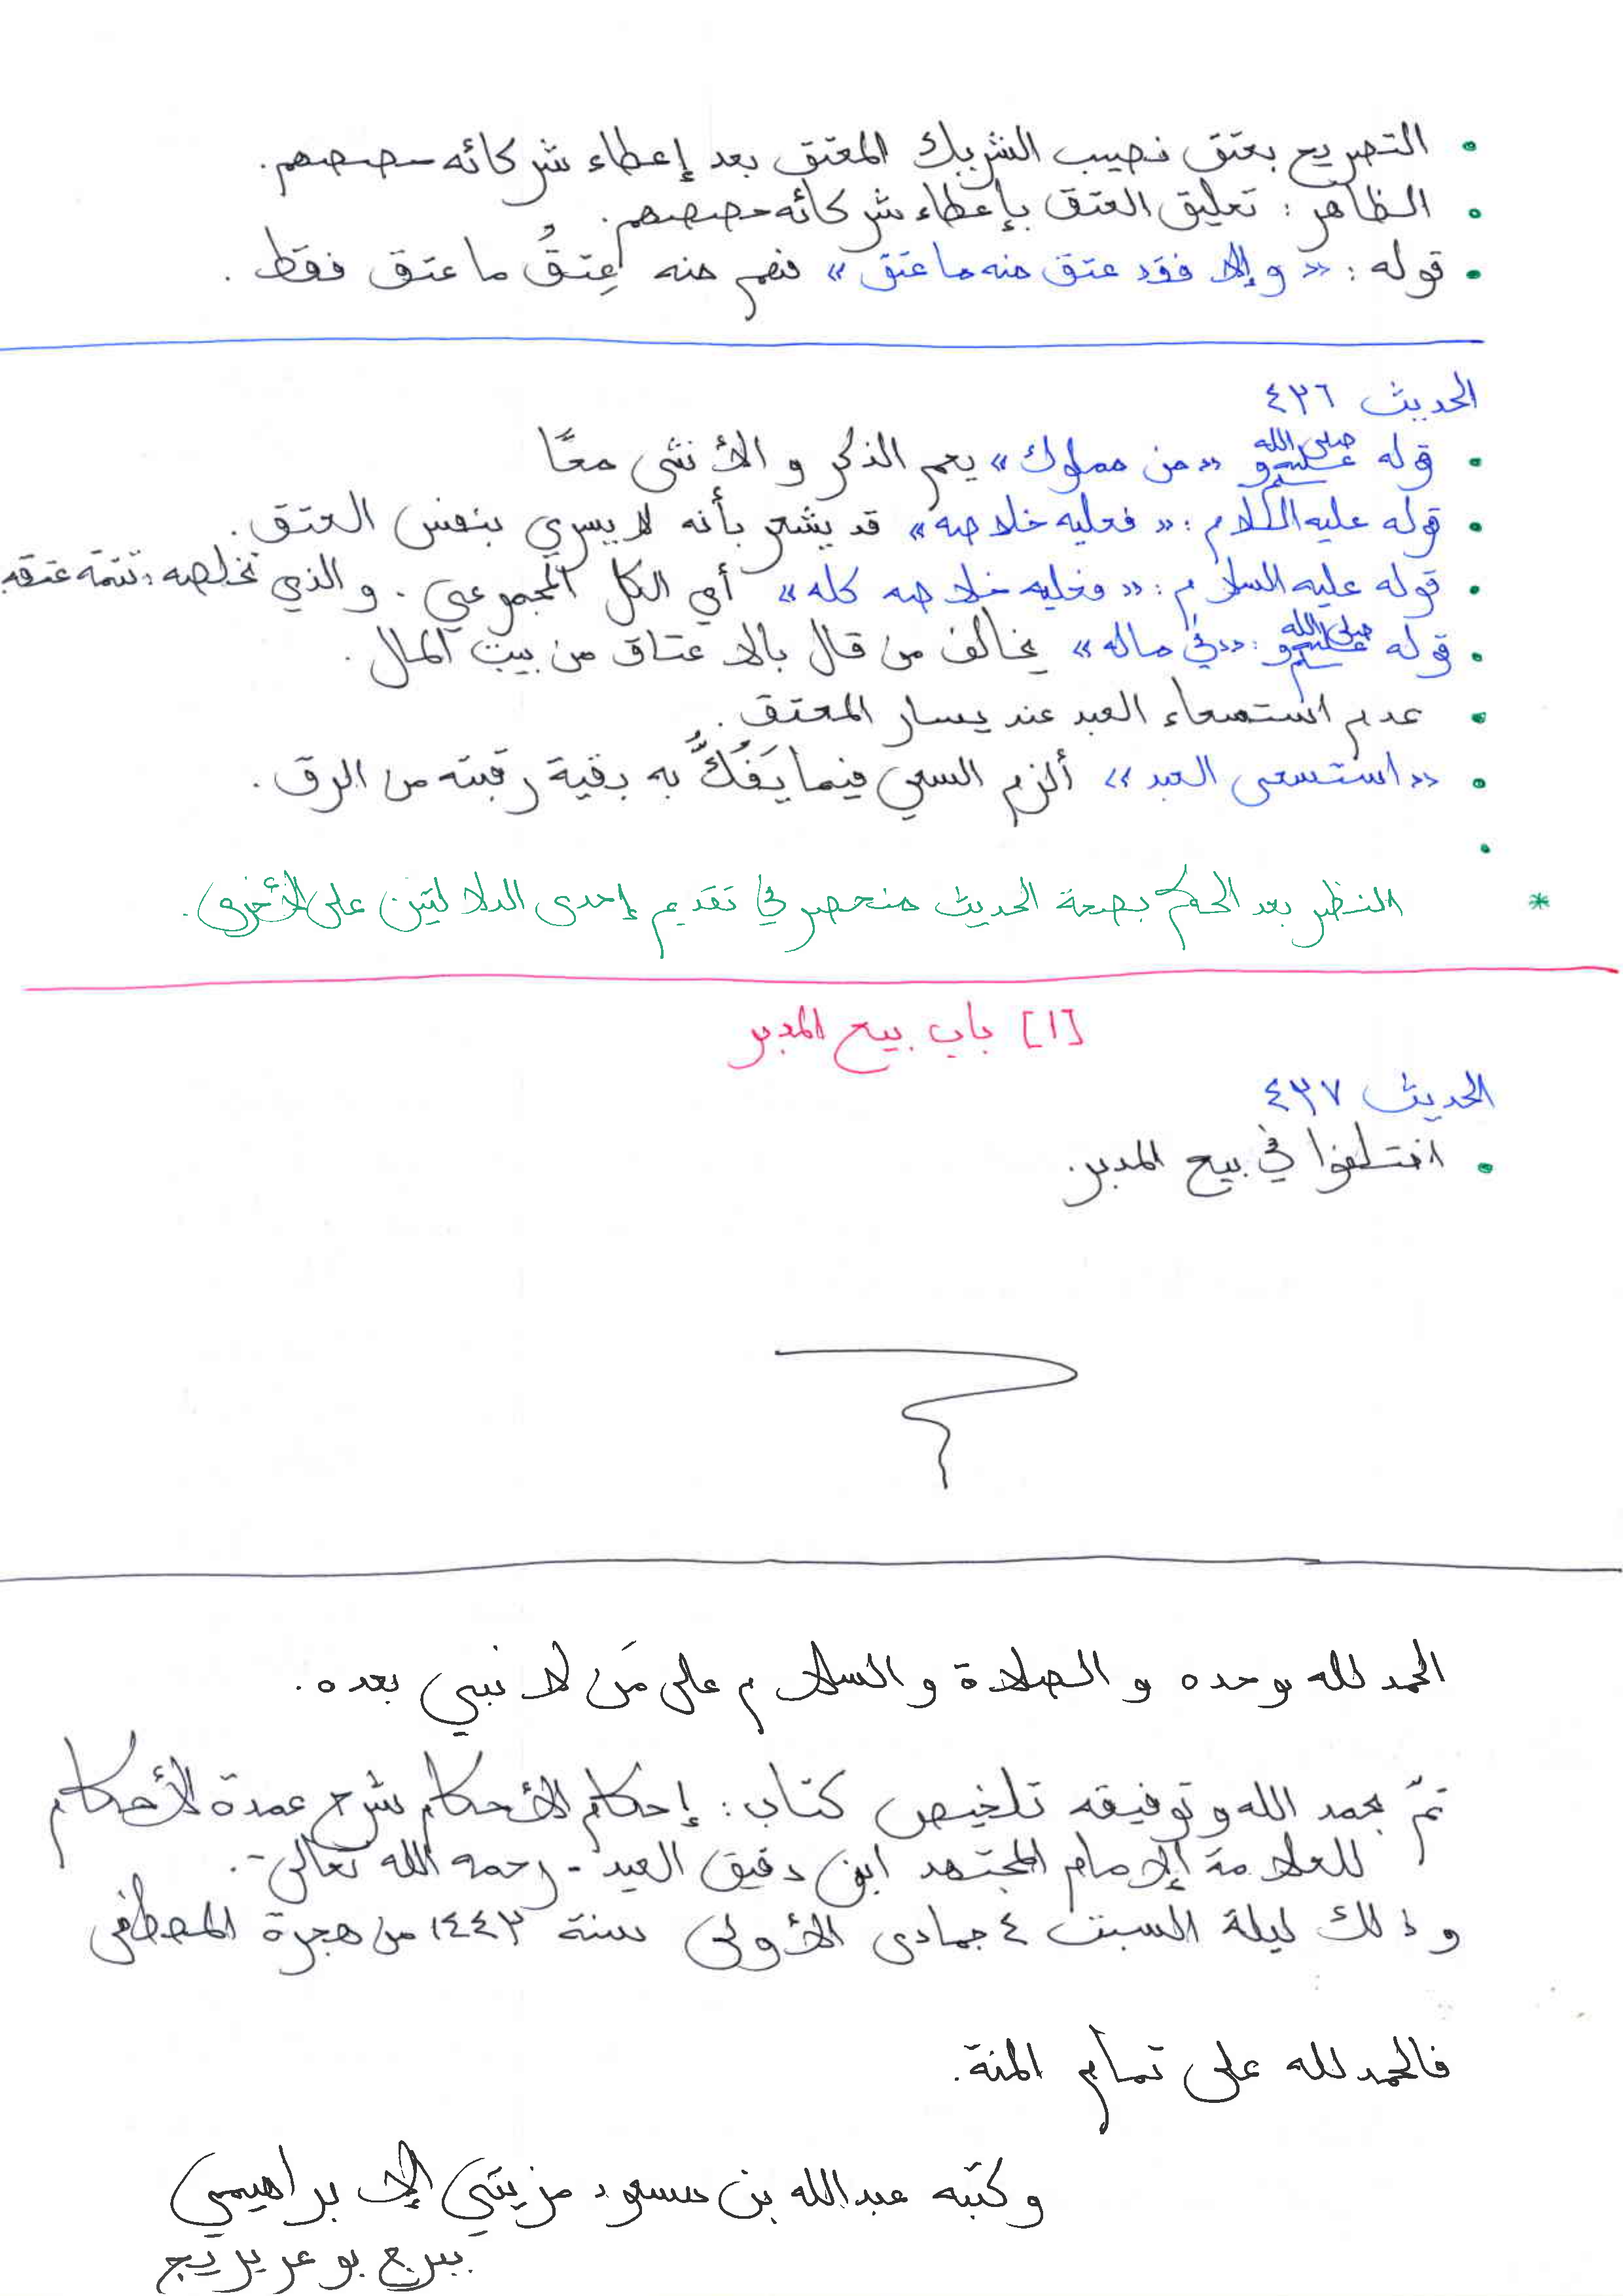 • التصريح بعتق نصيب الشريك المعتق بعد إعطاء شركائه حصصهم.
• الظاهر: تعليق العتق بإعطاء شركائه حصصهم.
• قوله: «وإلا فقد عتق منه ما عتق» فهم منه عِتقُ ما عتق فقط.
الحديث ٤٣٦
• قوله صلى الله عليه وسلم «من مملوك» يعم الذكر و الأنثى معًا
• قوله عليه السلام: «فعليه خلاصه» قد يشعر بأنه لا يسري بنفس العتق.
• قوله عليه السلام: «فعليه خلاصه كله» أي الكل المجموعي. والذي تخلصه: تتمة عتقه.
• قوله صلى الله عليه وسلم: «في ماله» يخالف من قال بالاعتاق من بيت المال.
• عدم استسعاء العبد عند يسار المعتق.
• «استسعى العبد» ألزم السعي فيما يَفُكُّ به بقية رقبته من الرق.
•
* النظر بعد الحكم بصحة الحديث منحصر في تقديم إحدى الدلالتين على الأخرى.
[١] باب بيع المدبر
الحديث ٤٣٧
• اختلفوا في بيع المدبر.
الحمد لله وحده و الصلاة و السلام على مَن لا نبي بعده.
تمّ بحمد الله و توفيقه تلخيص كتاب: إحكام الأحكام شرح عمدة الأحكام
للعلامة الإمام المجتهد ابن دقيق العيد - رحمه الله تعالى -.
و ذلك ليلة السبت ٤ جمادى الأولى سنة ١٤٤٣ من هجرة المصطفى
فالحمد لله على تمام المنة.
و كتبه عبد الله بن مسعود مزيتي الإبراهيمي
ببرج بوعريريج